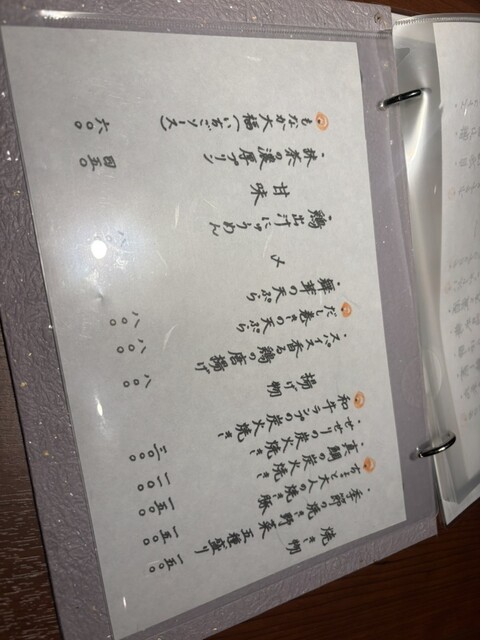 焼き物
・季節の焼き野菜 五種盛り 一五〇〇
ちょっと大人の焼き豚
・真鯛の炭火焼き
・せせりの炭火焼き
和牛ランプの炭火焼き
揚げ物
・スパイス香る鶏の唐揚げ 八〇〇
だし巻きの天ぷら 八〇〇
・舞茸の天ぷら 八〇〇
〆
・鶏出汁にゅうめん 八〇〇
甘味
・抹茶の濃厚プリン 四五〇
もなか大福(いちごソース) 六〇〇